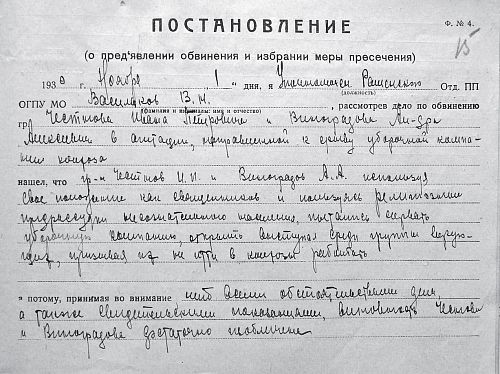 ПОСТАНОВЛЕНИЕ
Ф. № 4.
15
(о пред'явлении обвинения и избрании меры пресечения)
1930 г. Ноября 1 " дня, я Уполномочен Раменского Отд. ПП
(должность)
ОГПУ МО Васильков В. Н. , рассмотрев дело по обвинению
(фамилия и инициалы: имя и отчество)
гр. Честнова Ивана Петровича и Виноградова Ан-дра
Алексеевич в агитации, направленной к срыву уборочной компа-
нии колхоза
нашел, что гр-н Честнов И. П. и Виноградов А. А. используя
свое положение как священников и пользуясь религиозными
предрассудки несознательного населения, пытались сорвать
уборочную компанию, открыто выступая среди группы верую-
щих, призывая их не идти в колхоз работать
и потому, принимая во внимание всеми обстоятельствами дела,
а также свидетельскими показаниями, виновность Честнова
и Виноградова достаточно